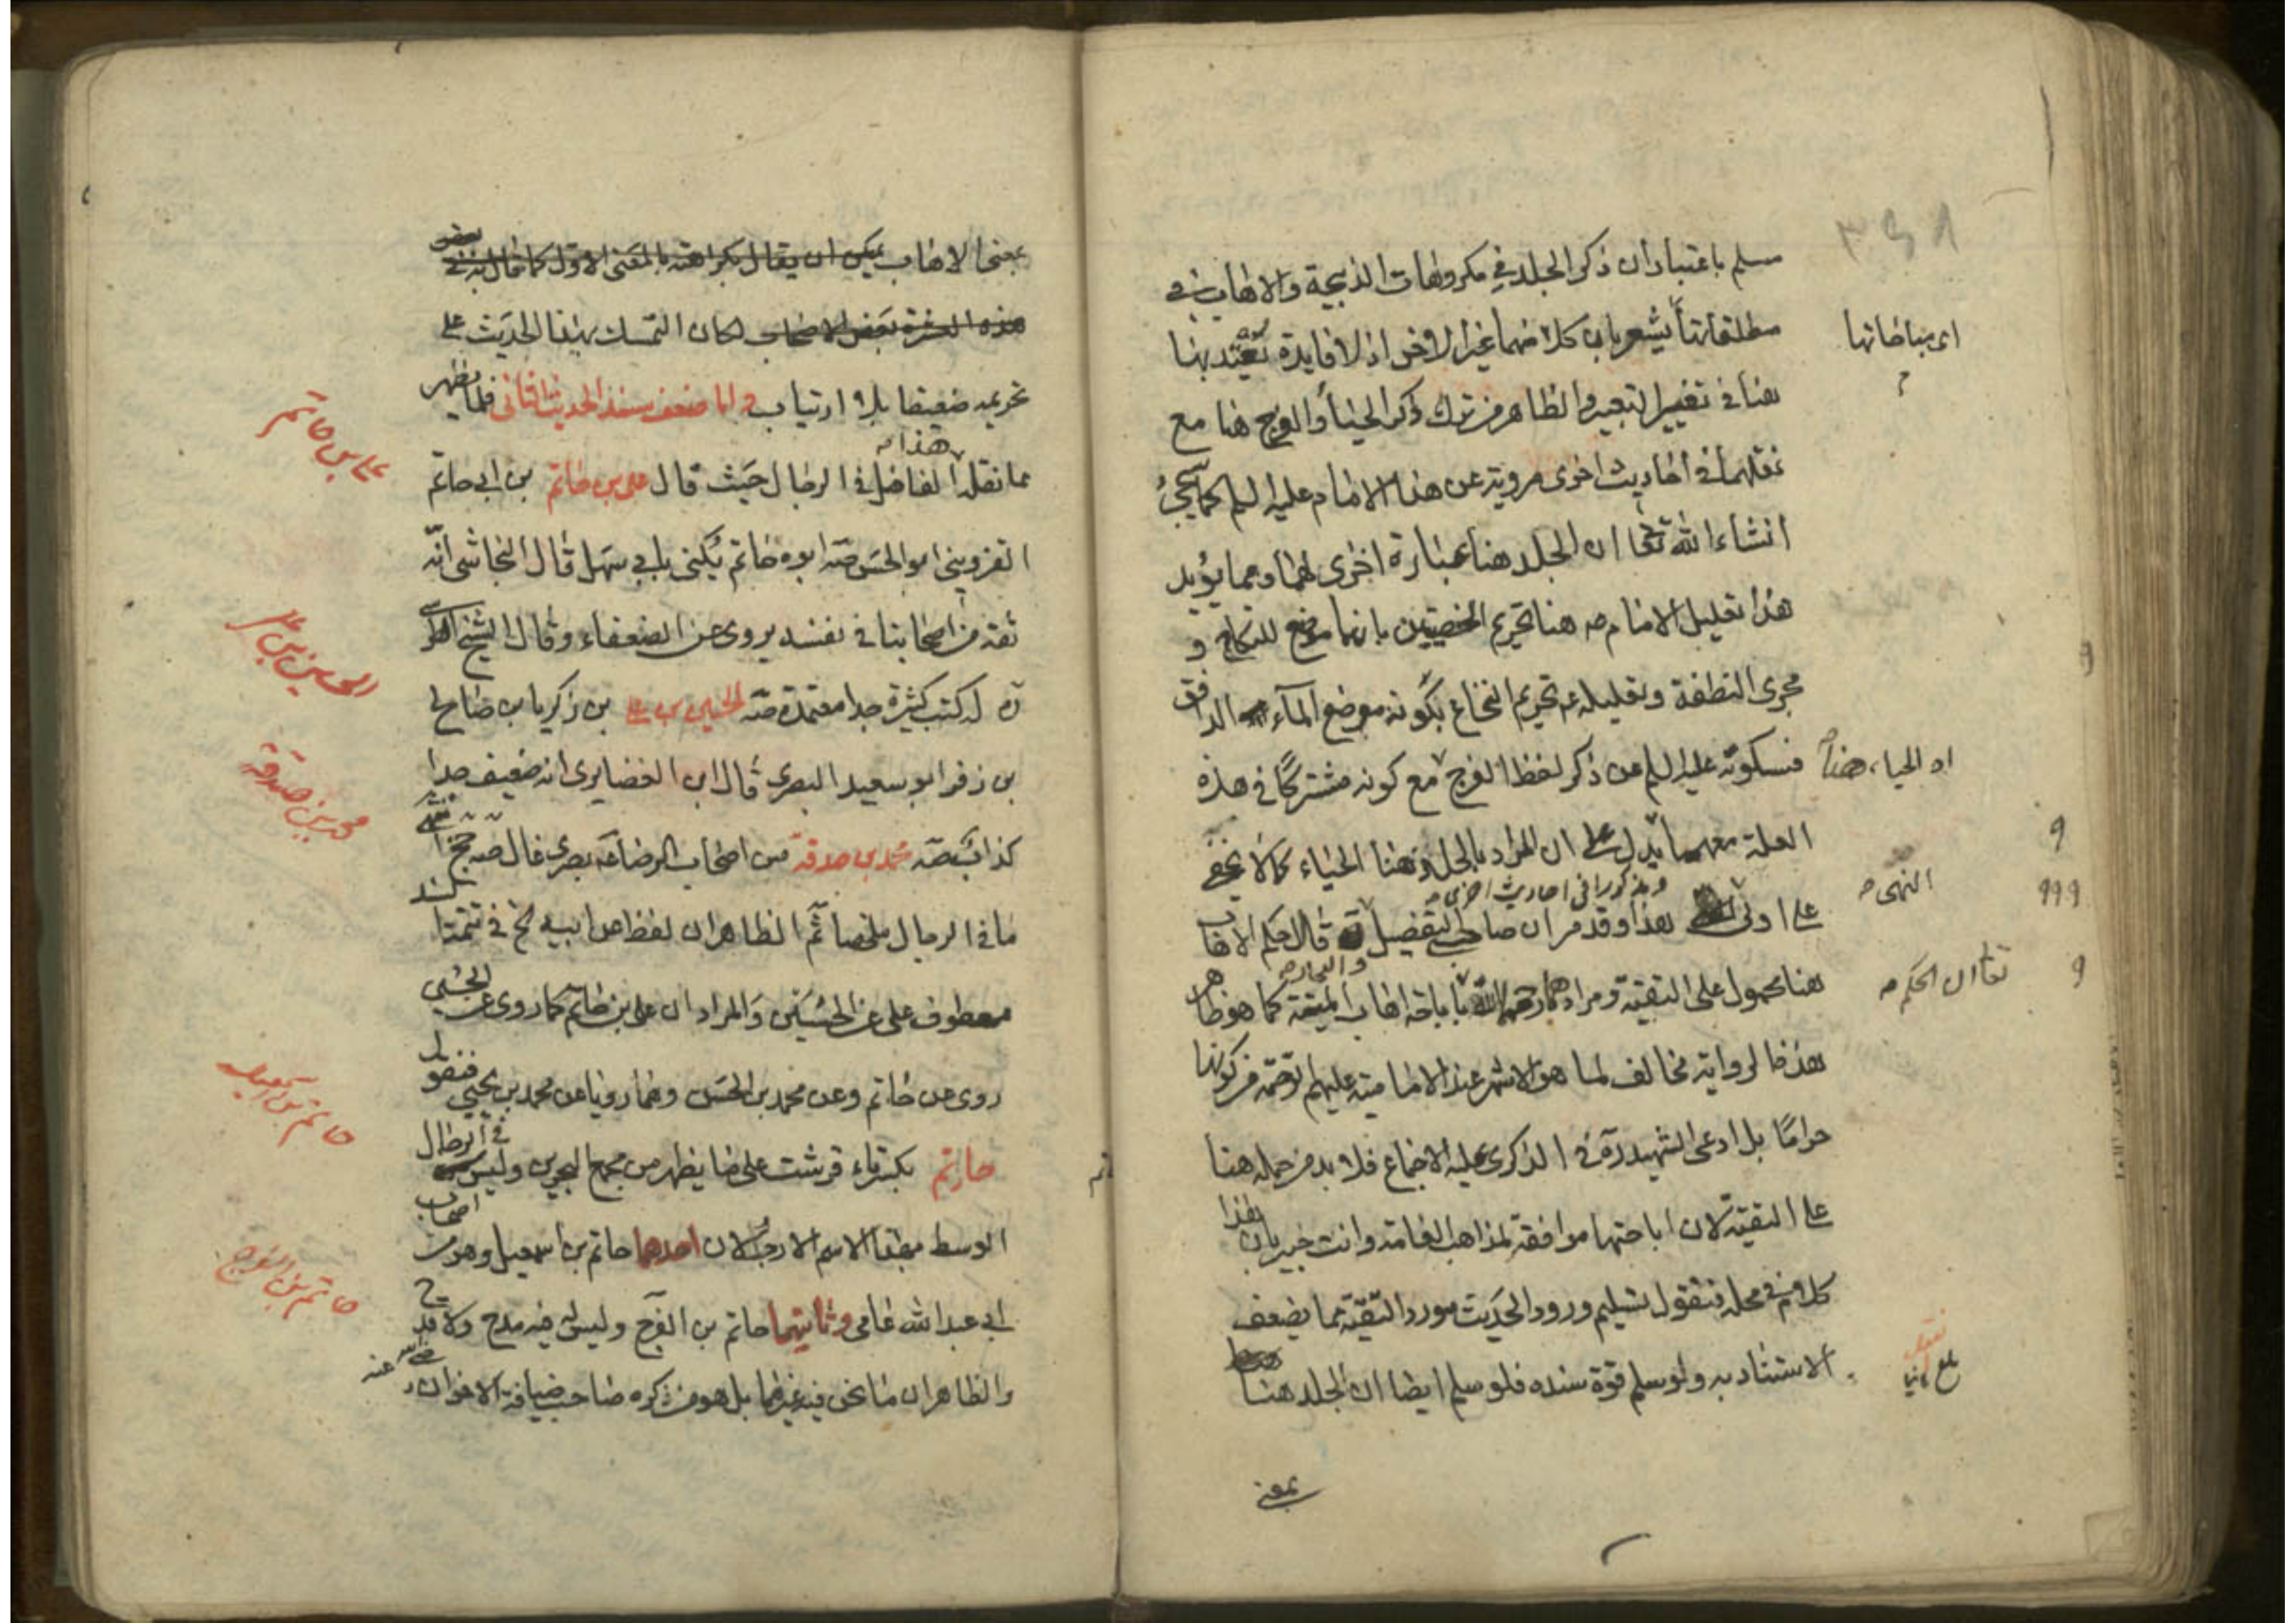 مسلم باعتبار ان ذكر الجلد في مكروهات الذبيحة والاهاب في
مطلقاتها يشعر بان كلا منهما غير الاخر اذ لا فايدة تعتد بها
هنا في تغيير التعبير والظاهر من ترك ذكر الحياء والفرج هنا مع
نقلهما في احاديث اخرى مروية عن هذا الامام عليه السلم كما سيجئ
انشاء الله تعا ان الجلد هنا عبارة اخرى لهما ومما يؤيد
هذا تعليل الامام هنا تحريم الخصيتين بانهما موضع للنكاح و
مجرى النطفة وتعليله تحريم النخاع بكونه موضع الماء الدافق
فسكوته عليه السلم عن ذكر لفظ الفرج مع كونه مشتركا في هذه
العلة معهما يدل على ان المراد بالجلد هنا الحياء كما لا يخفى
ومذكورا في احاديث اخرى
على اولى النهى هذا وقد مر ان صاحبي التفصيل والبحار قالا حكم الاهاب
هنا محمول على التقية ومرادهما رحمهما الله باباحة اهاب الميتة كما هو ظاهر
هذه الرواية مخالف لما هو الاشهر عند الامامية عليهم الرحمة من كونها
حراما بل ادعى الشهيد ره في الذكرى عليه الاجماع فلا بد من حمله هنا
على التقية لان اباحتها موافقة لمذاهب العامة وانت خبير بان هذا
كلام في محله فنقول تسليم ورود الحديث مورد التقية مما يضعف
الاستناد به ولو سلم قوة سنده فلو سلم ايضا ان الجلد هنا
بمعنى
اى مباحاتها
او الحياء هنا
النهى
تعا ان الحكم
بمعنى الاهاب يمكن ان يقال بكراهته بالمعنى الاول كما قال به في بعض
هذه العشرة بعض الاصحاب لكان التمسك بهذا الحديث على
تحريمه ضعيفا بلا ارتياب واما ضعف سند الحديث الثانى فلما يظهر
مما نقله هذا الفاضل في الرجال حيث قال على بن حاتم بن ابى حاتم
القزوينى ابو الحسن صه ابوه حاتم يكنى بابى سهل قال النجاشى انه
ثقة من اصحابنا في نفسه يروى عن الضعفاء وقال الشيخ الطوسى
ره له كتب كثيرة جدا معتمدة صه الحسين بن على بن زكريا بن صالح
بن زفر ابو سعيد البصرى قال ابن الغضايرى انه ضعيف جدا
كذاب صه محمد بن صدقة من اصحاب الرضا عه بصرى غال صه جخ انتهى
ما في الرجال ملخصا ثم الظاهر ان لفظ عن ابيه في تتمة السند
معطوف على عن الحسين والمراد ان على بن حاتم كما روى عن الحسين
روى عن حاتم وعن محمد بن الحسن وهما رويا عن محمد بن يحيى فنقول
حاتم بكسر تاء قرشت على ما يظهر من مجمع البحرين وليس في الرجال
الوسط بهذا الاسم الا رجلان احدهما حاتم بن اسمعيل وهو من اصحاب
ابى عبد الله عامى وثانيهما حاتم بن الفرج وليس فيه مدح ولا قدح
والظاهر ان ما نحن فيه غيرهما بل هو من ذكره صاحب ضيافة الاخوان
على بن حاتم
الحسين بن على
محمد بن صدقه
حاتم بن اسمعيل
حاتم بن الفرج